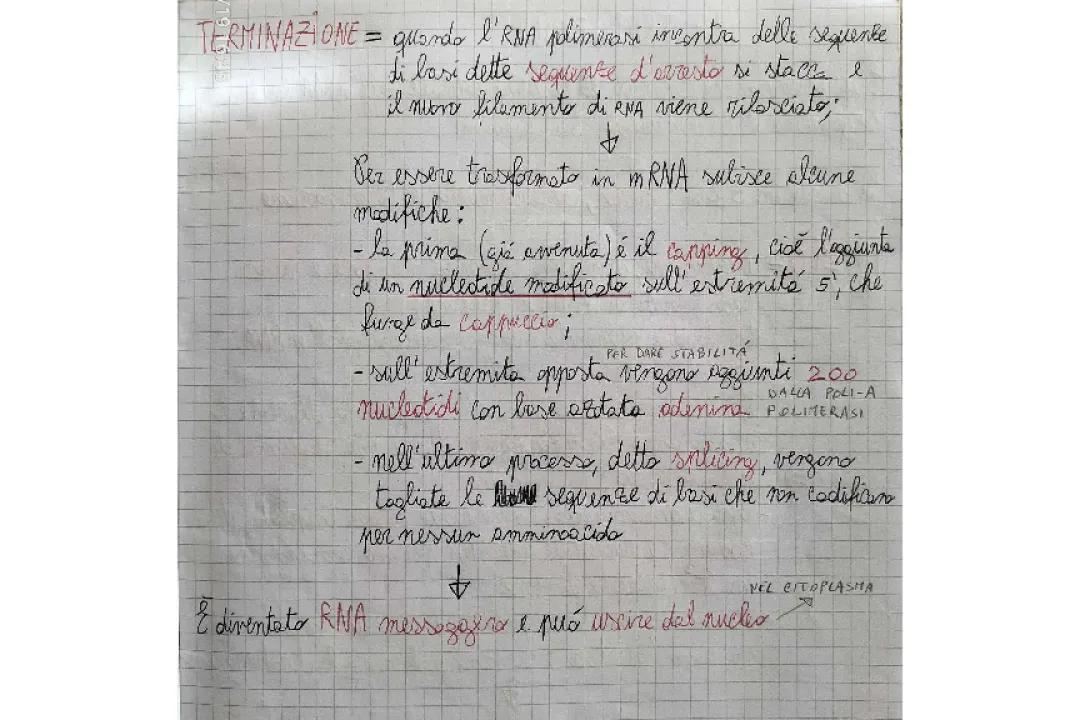 TERMINAZIONE = quando l'RNA polimerasi incontra delle sequenze
di basi dette sequenze d'arresto si stacca e
il nuovo filamento di RNA viene rilasciato;
↓
Per essere trasformato in mRNA subisce alcune
modifiche:
- la prima (giá avvenuta) é il capping, cioè l'aggiunta
di un nucleotide modificato sull'estremitá 5', che
funge da cappuccio;
PER DARE STABILITÁ
- sull'estremita opposta vengono aggiunti 200
nucleotidi con base azotata adenina DALLA POLI-A
POLIMERASI
- nell'ultimo processo, detto splicing, vengono
tagliate le sequenze di basi che non codificano
per nessun amminoacido
↓
NEL CITOPLASMA
È diventato RNA messaggero e puó uscire dal nucleo